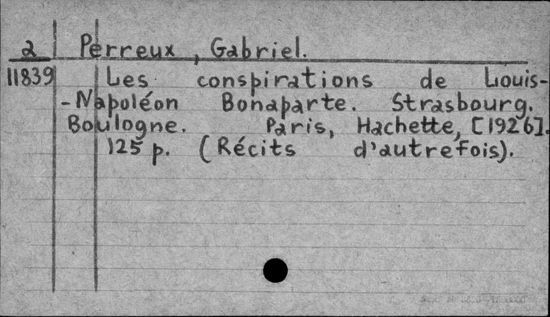 2 Perreux, Gabriel.
11839 Les conspirations de Louis-
-Napoléon Bonaparte. Strasbourg.
Boulogne. Paris, Hachette, [1926].
125 p. (Récits d'autrefois).